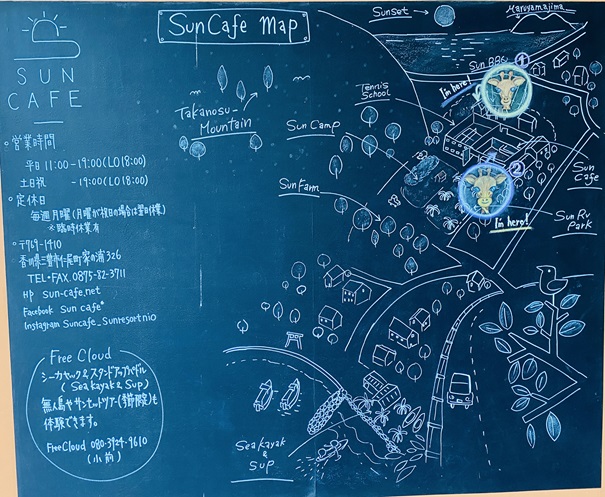 SUN
CAFE
Sun Cafe Map
Sunset
Maruyamajima
Sun Bay
①
I'm here!
Tennis
School
Takanosu-
Mountain
Sun Camp
Sun Farm
②
I'm here!
Sun
Cafe
Sun Rv
Park
Sea kayak
&
Sup
○営業時間
平日 11:00-19:00(LO18:00)
土日祝 -19:00(LO18:00)
○定休日
毎週月曜(月曜が祝日の場合は翌日休業)
※臨時休業有
○〒769-1410
香川県三豊市仁尾町家の浦326
TEL・FAX 0875-82-3711
Hp sun-cafe.net
Facebook Sun cafe*
Instagram Suncafe_Sunresortnio
Free Cloud
シーカヤック&スタンドアップパドル
(Sea kayak & Sup)
無人島やサンセットツアー(季節限定)も
体験できます。
FreeCloud 080-3924-9610
(小前)